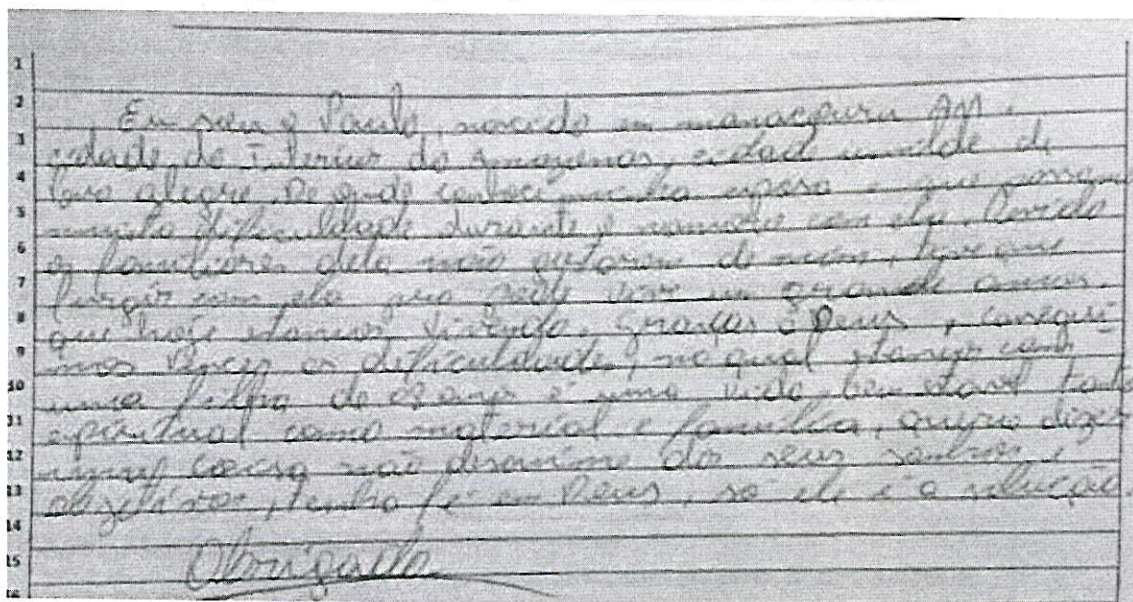 1
2
Eu sou o Paulo, nascido em manacapuru AM,
3
cidade do Interior do Amazonas, cidade umilde de
4
povo alegre. De onde conheci minha esposa e que
5
muita dificuldade durante o namoro com ela. Devido
6
os familiares dela não gostarem de mim, tive que
7
furgir com ela pra pode viver um grande amor.
8
que hoje estamos vivendo. graças á Deus, consegui-
9
mos vencer as dificuldade, no qual estamos com
10
uma filha de anos e uma vida bem stavel tanto
11
espiritual como material e familia, quero dizer
12
coisa não desanime dos seus sonhos e
13
obgetivos, tenha fé em Deus, só ele é a solução.
14
15
Obrigado
16